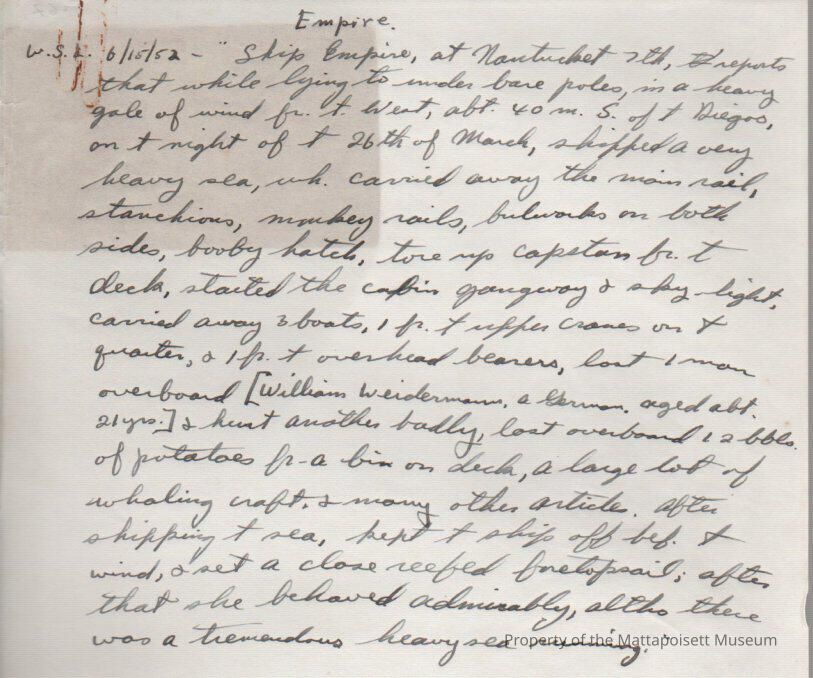 Empire.
W.S.L. 6/15/52 – "Ship Empire, at Nantucket 7th, reports
that while lying to under bare poles, in a heavy
gale of wind fr. t. West, abt. 40 m. S. of t Diegos,
on t night of t 26th of March, shipped a very
heavy sea, wh. carried away the main rail,
stanchions, monkey rails, bulwarks on both
sides, booby hatch, tore up capstan fr. t
deck, started the cabin gangway & sky-light,
carried away 3 boats, 1 fr. t upper cranes on t
quarter, & 1 fr. t overhead bearers, lost 1 man
overboard [William Weidermann, a German, aged abt.
21 yrs.] & hurt another badly, lost overboard 12 bbls.
of potatoes fr. a bin on deck, a large lot of
whaling craft, & many other articles. After
shipping t sea, kept t ship off bef. t
wind, & set a close reefed foretopsail; after
that she behaved admirably, altho there
was a tremendous heavy sea running."
Property of the Mattapoisett Museum